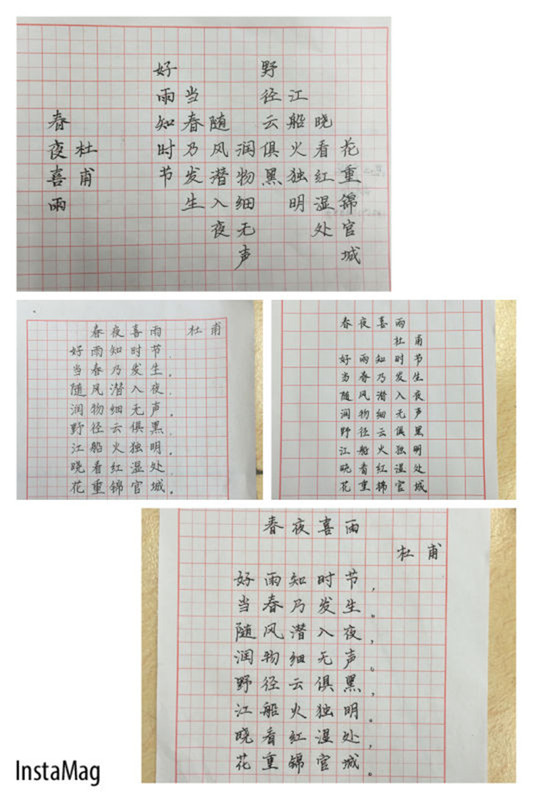 春夜喜雨
杜甫
好雨知时节
当春乃发生
随风潜入夜
润物细无声
野径云俱黑
江船火独明
晓看红湿处
花重锦官城
春夜喜雨 杜甫
好雨知时节，
当春乃发生。
随风潜入夜，
润物细无声。
野径云俱黑，
江船火独明。
晓看红湿处，
花重锦官城。
春夜喜雨
杜甫
好雨知时节
当春乃发生
随风潜入夜
润物细无声
野径云俱黑
江船火独明
晓看红湿处
花重锦官城
春夜喜雨
杜甫
好雨知时节，
当春乃发生。
随风潜入夜，
润物细无声。
野径云俱黑，
江船火独明。
晓看红湿处，
花重锦官城。
InstaMag